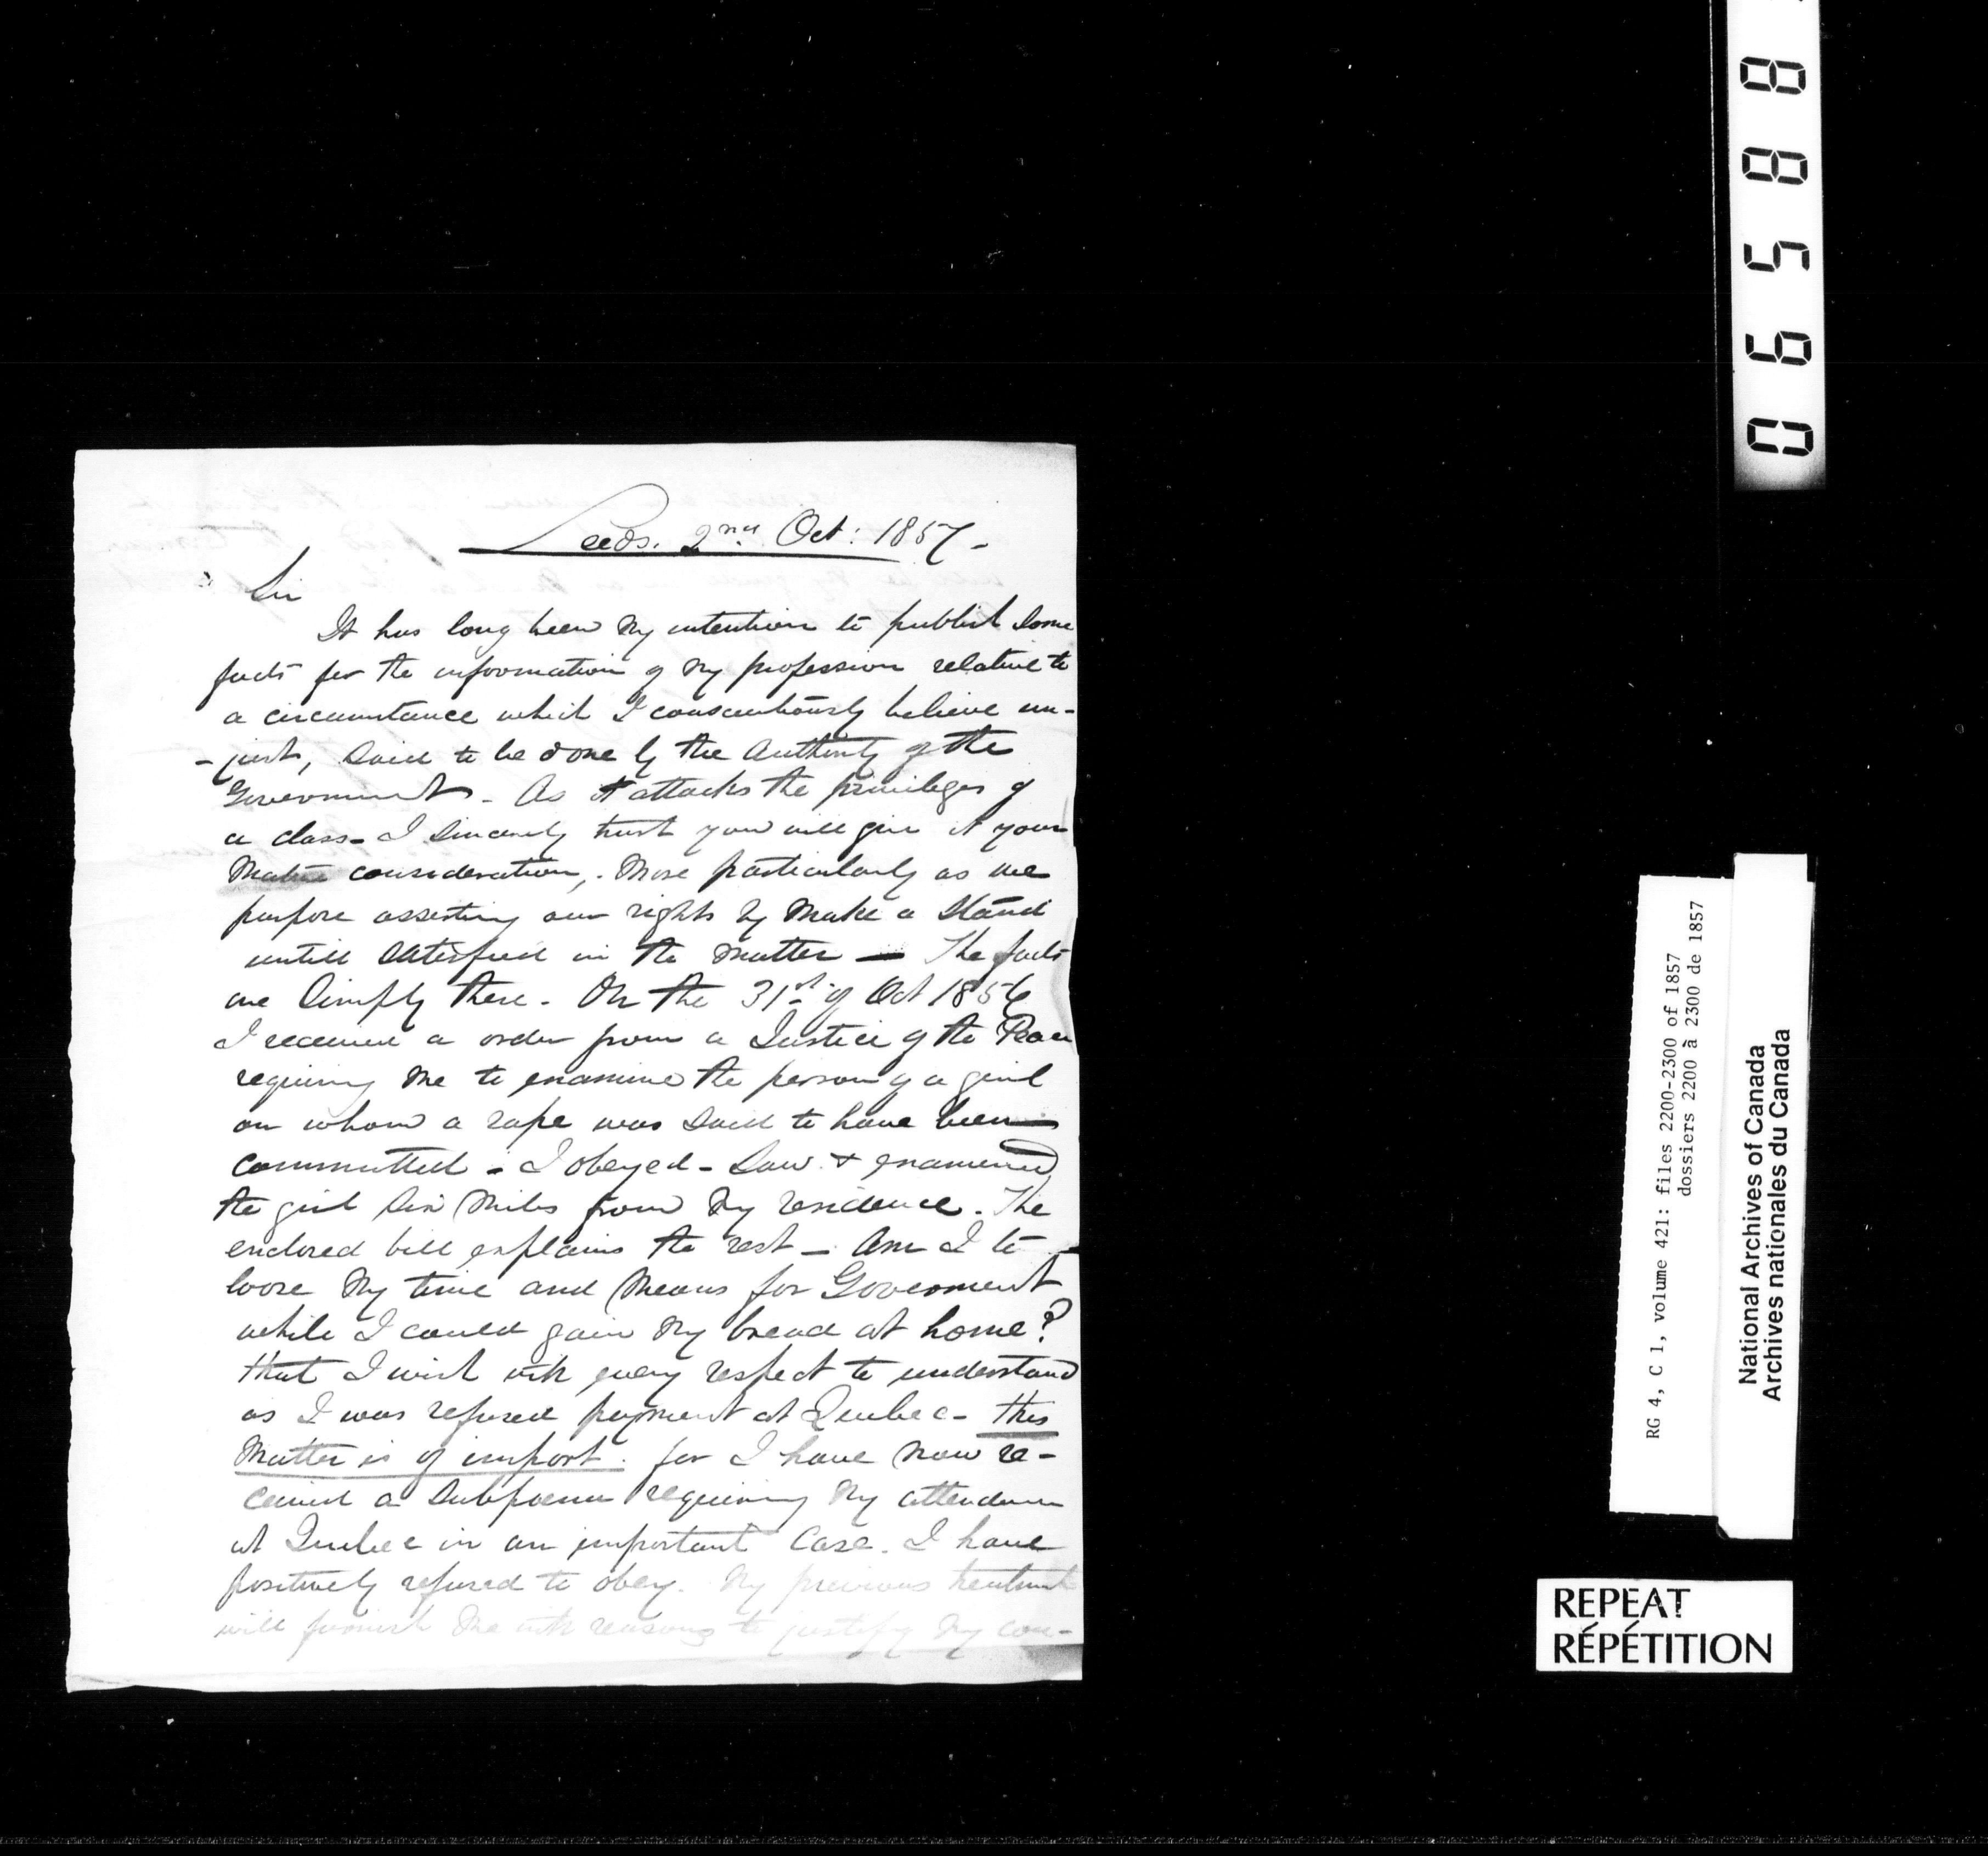 Leeds. 2nd Oct: 1857-
Sir
It has long been my intention to publish some
facts for the information of my profession relative to
a circumstance which I conscientiously believe un-
-just, said to be done by the authority of the
Government - As it attacks the privileges of
a class - I sincerely trust you will give it your
Mature consideration, More particularly as we
purpose asserting our rights by Make a Stand
untill satisfied in the matter — The facts
are simply these - On the 31st of Oct 1856
I received a order from a Justice of the Peace
requiring me to examine the person of a girl
on whom a rape was said to have been
committed - I obeyed - Saw & examined
the girl six miles from my residence. The
enclosed bill explains the rest - Am I to
loose my time and means for Goverment
while I could gain my bread at home?
that I wish with every respect to understand
as I was refused payment at Quebec - this
Matter is of import. for I have now re-
ceived a subpoena requiring my attendance
at Quebec in an important Case. I have
positively refused to obey. My previous treatment
will furnish me with reasons to justify my con-
0 6 5 8 8
RG 4, C 1, volume 421: files 2200-2300 of 1857
dossiers 2200 à 2300 de 1857
National Archives of Canada
Archives nationales du Canada
REPEAT
RÉPÉTITION